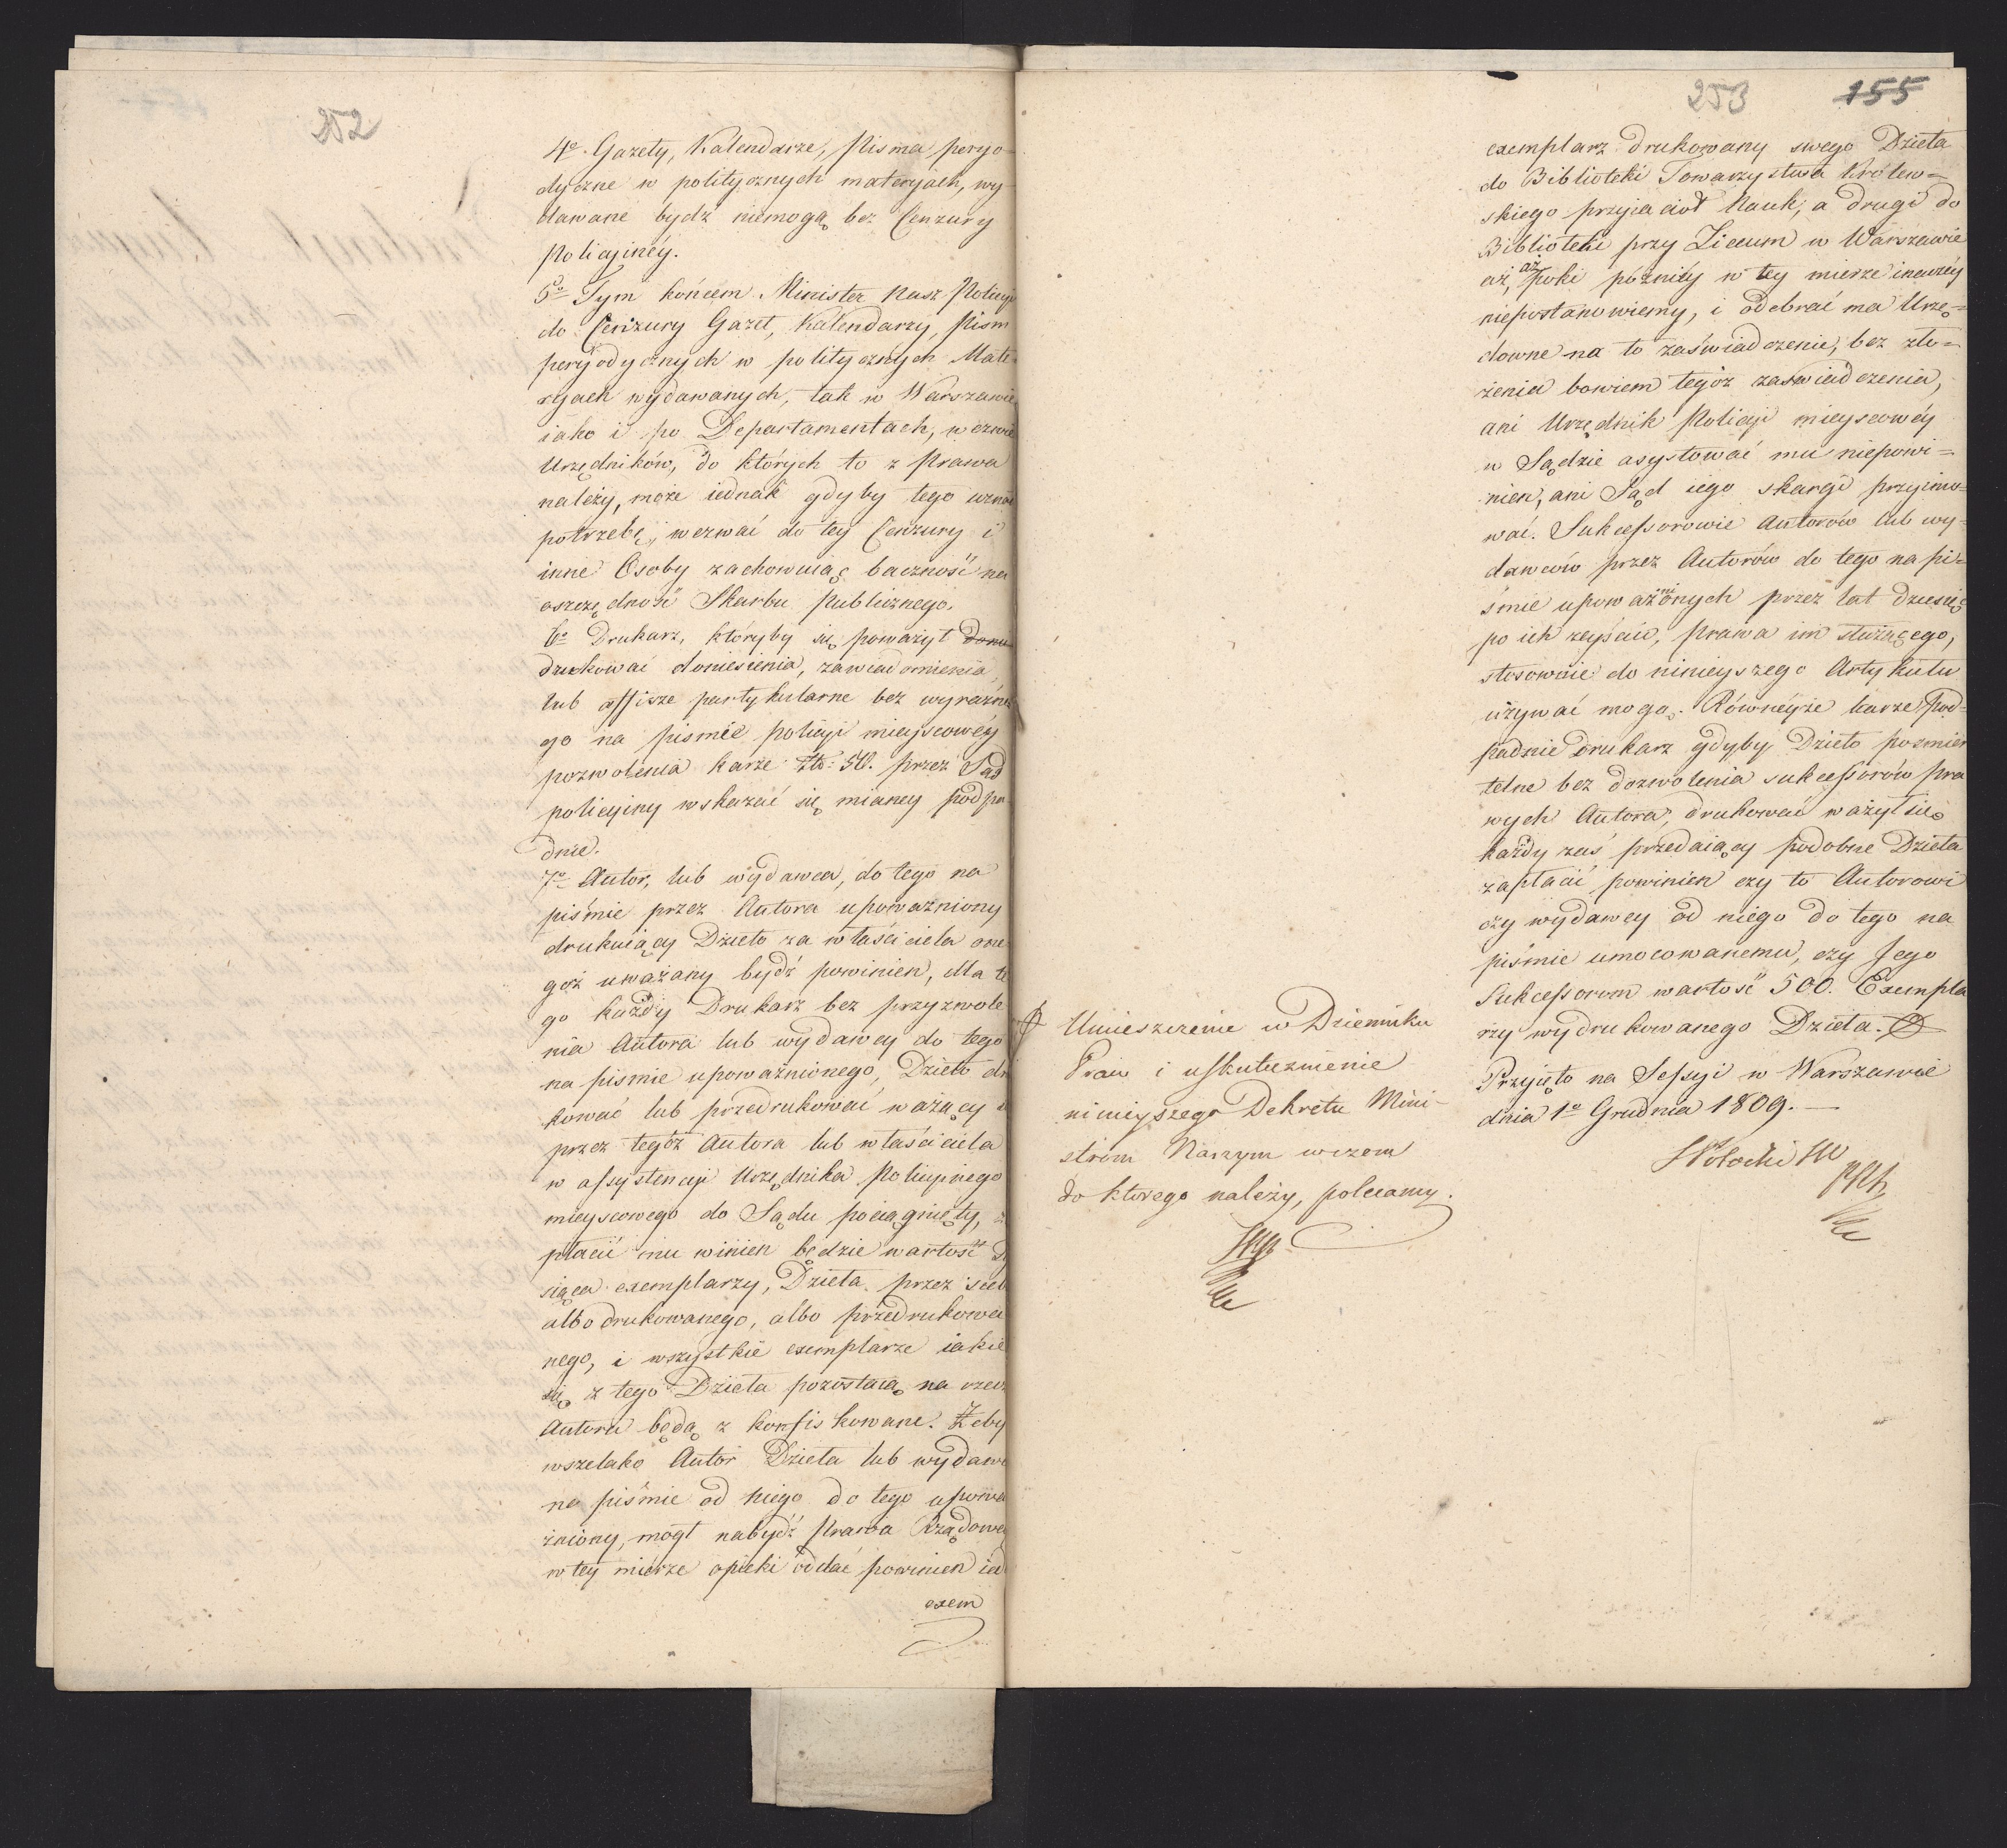 252
4o. Gazety, Kalendarze, Pisma peryo-
dyczne w politycznych materyjach, wy-
dawane bydź niemogą bez Cenzury
Policyjnéy.
5o Tym końcem Minister Nasz Policyi
do Cenzury Gazet, Kalendarzy, Pism
peryjodycznych w politycznych Mate-
ryjach wydawanych, tak w Warszawie
iako i po Departamentach, wezwie
Urzędników, do których to z Prawa
należy, może iednak gdyby tego uznał
potrzebę, wezwać do tey Cenzury i
inne Osoby zachowuiąc baczność na
oszczędność Skarbu Publicznego.
6o Drukarz, któryby się poważył
drukować doniesienia, zawiadomienia,
lub affisze partykularne bez wyraźne-
go na piśmie policyi mieyscowéy
pozwolenia karze Złł: 50. przez Sąd
policyiny wskazać się mianey podpa-
dnie.
7o Autor, lub wydawca, do tego na
piśmie przez Autora upoważniony
drukuiący Dzieło za właściciela one-
goż uważany bydź powinien, dla te
go każdy Drukarz bez przyzwole
nia Autora lub wydawcy do tego
na piśmie upoważnionego, Dzieło dru
kować lub przedrukować ważący
przez tegoż Autora lub właściciela
w assystencyi Urzędnika Policyinego
mieyscowego do Sądu pociągnięty,
płacić mu winien będzie wartość
siąca exemplarzy, Dzieła przez sieb
albo drukowanego, albo przedrukowa
nego, i wszystkie exemplarze iakie
się z tego Dzieła pozostaią na rzecz
Autora będą z konfiskowane. Żeby
wszelako Autor Dzieła lub wydawc
na piśmie od niego do tego upowa
żniony, mógł nabydź Prawa Rządowey
w tey mierze opieki oddać powinien ied
exem
253 155
exemplarz drukowany swego Dzieła
do Biblioteki Towarzystwa Królew=
skiego przyiaciół Nauk, a drugi do
Biblioteki przy Liceum w Warszawie
aż, aż póki późniéy w tey mierze inaczéy
niepostanowiemy, i odebrać ma Urzę=
downe na to zaświadczenie, bez zło=
żenia bowiem tegóż zaświadczenia,
ani Urzędnik Policyi mieyscowéy
w Sądzie asystować mu niepowi=
nien, ani Sąd iego skargi przyimo=
wać. Sukcessorowie Autorów lub wy-
dawców przez Autorów do tego na pi=
śmie upoważnionych przez lat dziesięć
po ich zeyściu, prawa im służącego,
stosownie do ninieyszego Artykułu
używać mogą. Równéyże karze pod=
padnie Drukarz gdyby Dzieło pozmier
telne bez dozwolenia sukcessorów pra
wych Autora, drukować ważył się
każdy zaś przedaiący podobne Dzieła
zapłacić powinien czy to Autorowi
czy wydawcy od niego do tego na
piśmie umocowanemu, czy Jego
Sukcessorom wartość 500. Exempla
rzy wydrukowanego Dzieła.
Przyięto na Sessyi w Warszawie
dnia 1o Grudnia 1809. —
Umieszczenie w Dzienniku
Praw i uskutecznienie
ninieyszego Dekretu Mini-
strom Naszym wczem
do ktorego należy, polecamy.